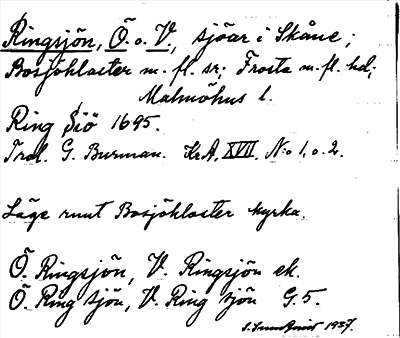 Ringsjön, Ö. o. V., sjöar i Skåne;
Bosjökloster m. fl. sr; Frosta m. fl. hd;
Malmöhus l.
Ring Siö 1695.
G. Burman. KrA, XVII, N:o 1, o. 2.
Läge runt Bosjökloster kyrka.
Ö. Ringsjön, V. Ringsjön ek.
Ö. Ring sjön, V. Ring sjön G. 5.
1927.